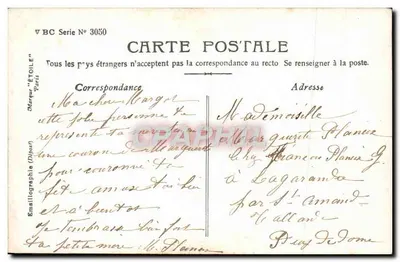 BC Serie Nº 3050
CARTE POSTALE
Tous les pays étrangers n'acceptent pas la correspondance au recto Se renseigner à la poste.
Correspondance
Adresse
Marque "ÉTOILE" Paris
Emaillographie
Ma chère Margot
cette jolie personne te
représente ta
une couronne Marguerite
pour ta
fête amuse toi bien
et à bientôt
Je t'embrasse bien fort
ta petite
Mademoiselle
Marguerite Planeix
Chez Planeix
à Lagarandie
par St Amand
Tallende
Puy de Dome